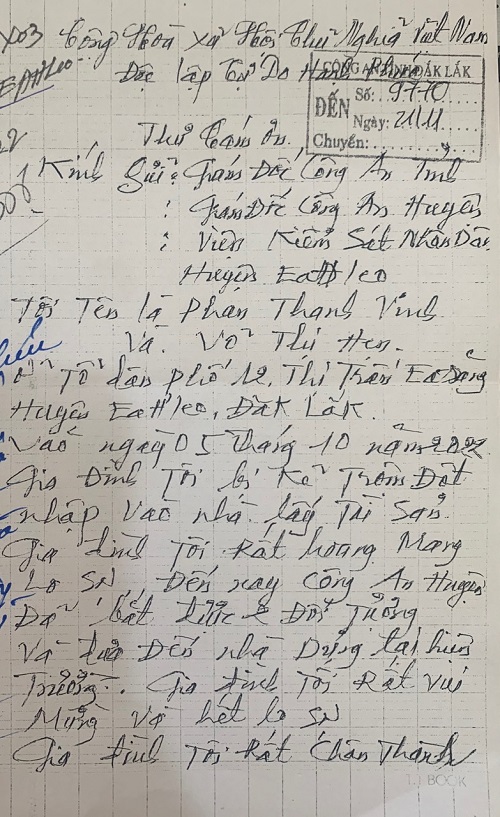 Cộng Hoà xã Hội Chủ Nghĩa Việt Nam
Độc lập Tự Do Hạnh Phúc
CÔNG AN TỈNH ĐẮK LẮK
ĐẾN
Số: 9770
Ngày: 21/11
Chuyển:
Thư Cảm ơn.
Kính Gửi: Giám Đốc Công An Tỉnh
: Giám Đốc Công An Huyện
: Viện Kiểm Sát Nhân Dân
Huyện EaHleo
Tôi Tên là Phan Thanh Vinh
Và. Võ Thị Hen.
ở Tổ dân phố 12, Thị Trấn EaDrăng
Huyện EaHleo, Đăk Lăk.
Vào ngày 05 Tháng 10 năm 2022
Gia Đình Tôi bị Kẻ Trộm Đột
nhập Vào nhà lấy Tài Sản
Gia đình Tôi Rất hoang Mang
Lo Sợ, Đến nay Công An Huyện
Đã bắt được Đối Tượng
Và đưa Đến nhà Dựng lại hiện
Trường. Gia đình Tôi Rất Vui
Mừng Và hết lo Sợ
Gia đình Tôi Rất Chân Thành
BOOK